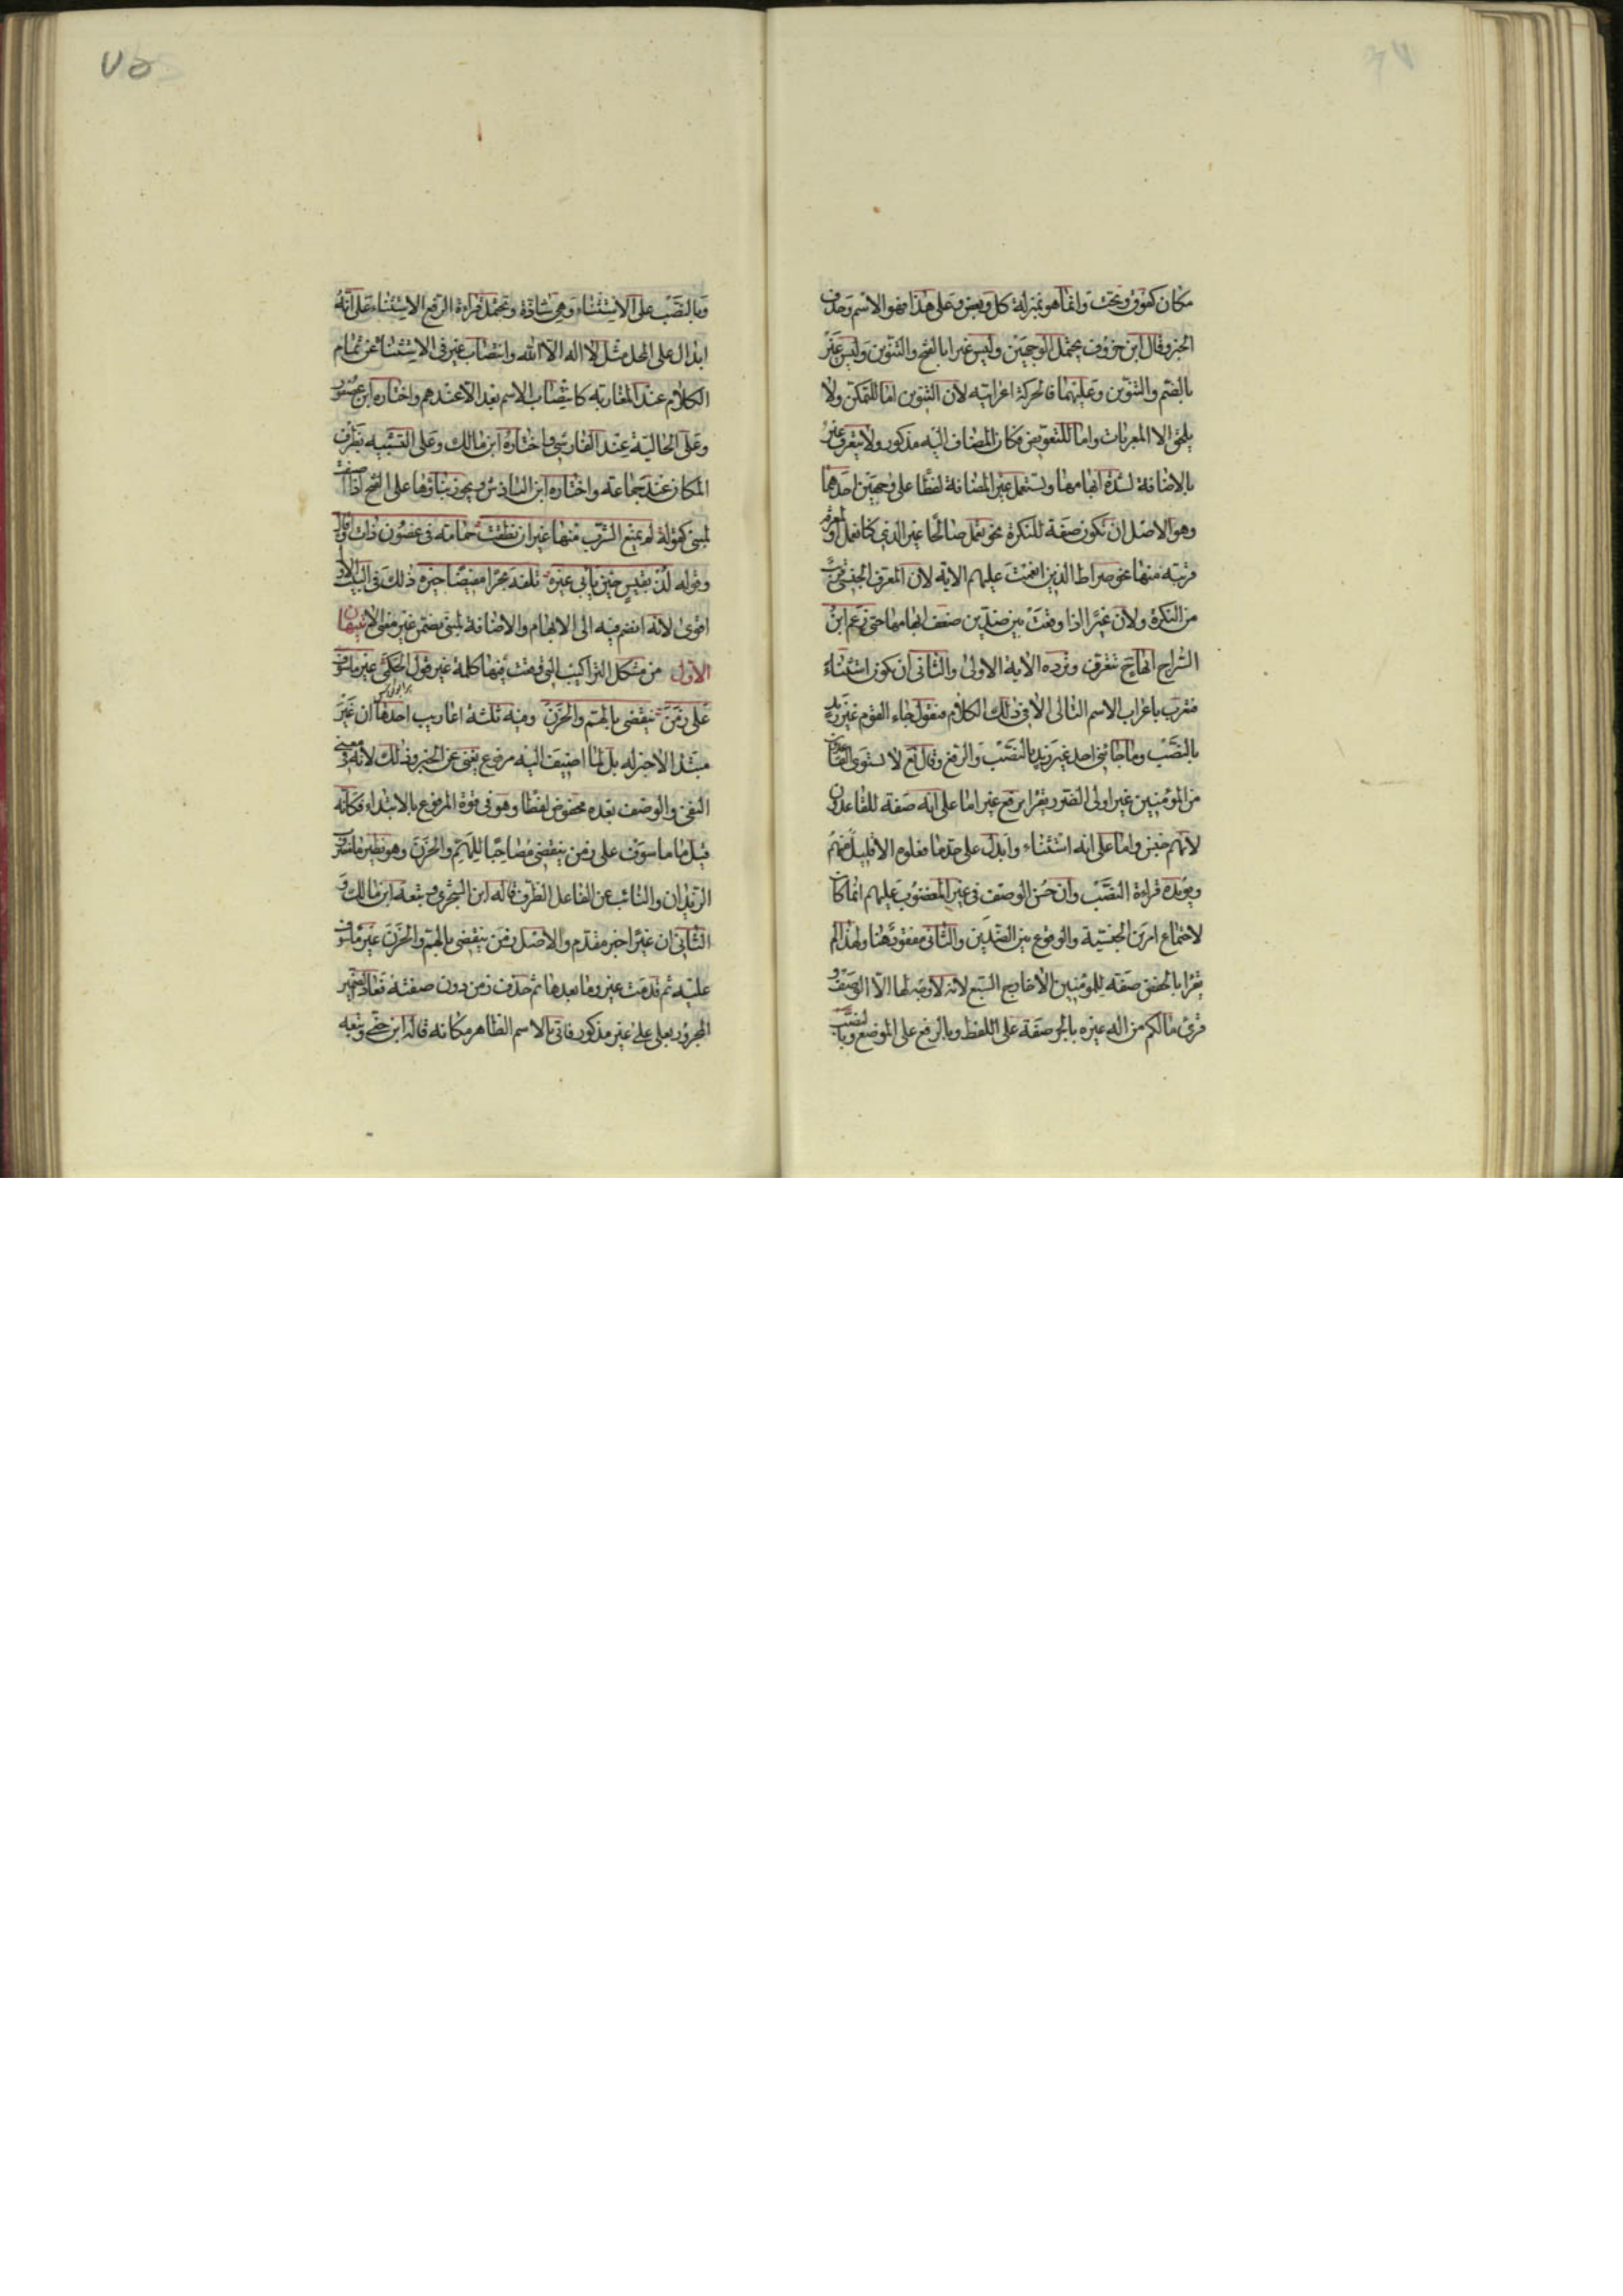 مكان كفوق وتحت وانما هو بمنزلة كل وبعض وعلى هذا فهو الاسم وحذف
الخبر وقال ابن خروف يحتمل الوجهين وليس غيرا بالفتح والتنوين وليس غير
بالضم والتنوين وعليهما فالحركة اعرابيه لان التنوين اما للتمكن ولا
يلحق الا المعربات واما للتعويض فكان المضاف اليه مذكور ولا يتعرف غير
بالاضافة لشدة ابهامها وتستعمل غير المضافة لفظا على وجهين احدهما
وهو الاصل ان تكون صفة للنكرة نحو نعمل صالحا غير الذي كنا نعمل او لمعرفة
قريبة منها نحو صراط الذين انعمت عليهم الاية لان المعرف الجنسي قريب
من النكرة ولان غيرا اذا وقعت بين ضدين ضعف ابهامها حتى زعم ابن
السراج انها ح تتعرف ويرده الاية الاولى والثاني ان تكون استثناء
فتعرب باعراب الاسم التالى الا فى ذلك الكلام فتقول جاء القوم غير زيد
بالنصب وما جاءنى احد غير زيد بالنصب والرفع وقال تع لا يستوى القاعدون
من المؤمنين غير اولى الضرر يقرا برفع غير اما على انه صفة للقاعدون
لانهم جنس واما على انه استثناء وابدل على حد ما فعلوه الا قليل منهم
ويؤيده قراءة النصب وان حسن الوصف فى غير المغضوب عليهم انما كان
لاجتماع امرين الجنسية والوقوع بين الضدين والثانى مفقود هنا ولهذا لم
يقرا بالخفض صفة للمؤمنين الا خارج السبع لانه لا وجه لها الا الوصف و
قرئ ما لكم من اله غيره بالجر صفة على اللفظ وبالرفع على الموضع وبالنصب
وبالنصب على الاستثناء وهى شاذة وتحتمل قراءة الرفع الاستثناء على انه
ابدال على المحل مثل لا اله الا الله وانتصاب غير فى الاستثناء عن تمام
الكلام عند المغاربه كانتصاب الاسم بعد الا عندهم واختاره ابن عصفور
وعلى الحالية عند الفارسى واختاره ابن مالك وعلى التشبيه بظرف
المكان عند جماعة واختاره ابن الباذش ويجوز بناؤها على الفتح اذا اضيفت
لمبنى كقوله لم يمنع الشرب منها غير ان نطقت حمامة فى غصون ذات اوقال
وقوله لذ بقيس حين يأبى غيره تلفه بحرا مفيضا خيره وذلك فى البيت الاول
اقوى لانه انضم فيه الى الابهام والاضافة لمبنى تضمن غير معنى الا تنبيهان
الاول من مشكل التراكيب التى وقعت فيها كلمة غير قول الحكمى غير ماسوف
على زمن ينقضى بالهم والحزن وفيه ثلثة اعاريب احدها ان غير
مبتدا لا خبر له بل لما اضيف اليه مرفوع يغنى عن الخبر وذلك لانه فى معنى
النفى والوصف بعده مخفوض لفظا وهو فى قوة المرفوع بالابتداء فكانه
قيل ما ماسوف على زمن ينقضى مصاحبا للهم والحزن وهو نظير ما مضروب
الزيدان والنائب عن الفاعل الظرف قاله ابن الشجرى وتبعه ابن مالك و
الثانى ان غيرا خبر مقدم والاصل زمن ينقضى بالهم والحزن غير ماسوف
عليه ثم قدمت غير وما بعدها ثم حذف زمن دون صفته فعاد الضمير
المجرور بعلى على غير مذكور فاتى بالاسم الظاهر مكانه قاله ابن جنى وتبعه